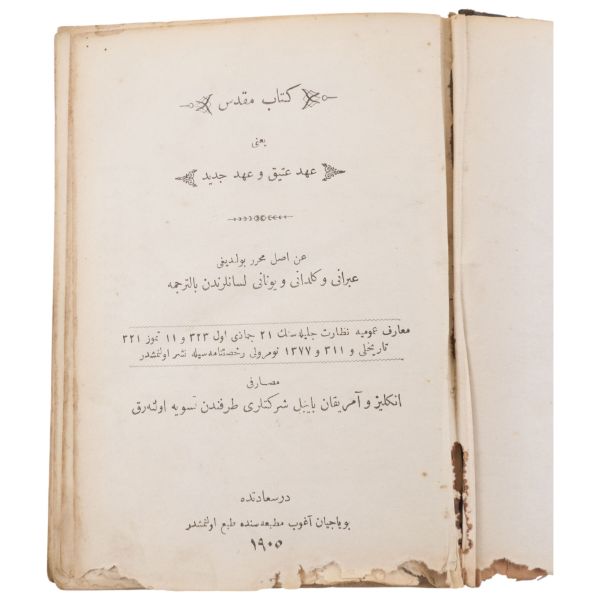 كتاب مقدس
يعنی
عهد عتيق و عهد جديد
عن اصل محرر بولنديغی
عبرانی و كلدانی و يونانی لسانلرندن بالترجمه
معارف عموميه نظارت جليله سنك ٢١ جمادی اول ٣٢٣ و ١١ تموز ٣٢١
تاريخلی و ٣١١ و ١٣٧٧ نومرولی رخصتنامه سيله نشر اولنمشدر
مصارفی
انكليز و آمريقان بايبل شركتلری طرفندن تسويه اولنه رق
درسعادتده
بوياجيان آغوب مطبعه سنده طبع اولنمشدر
١٩٠٥